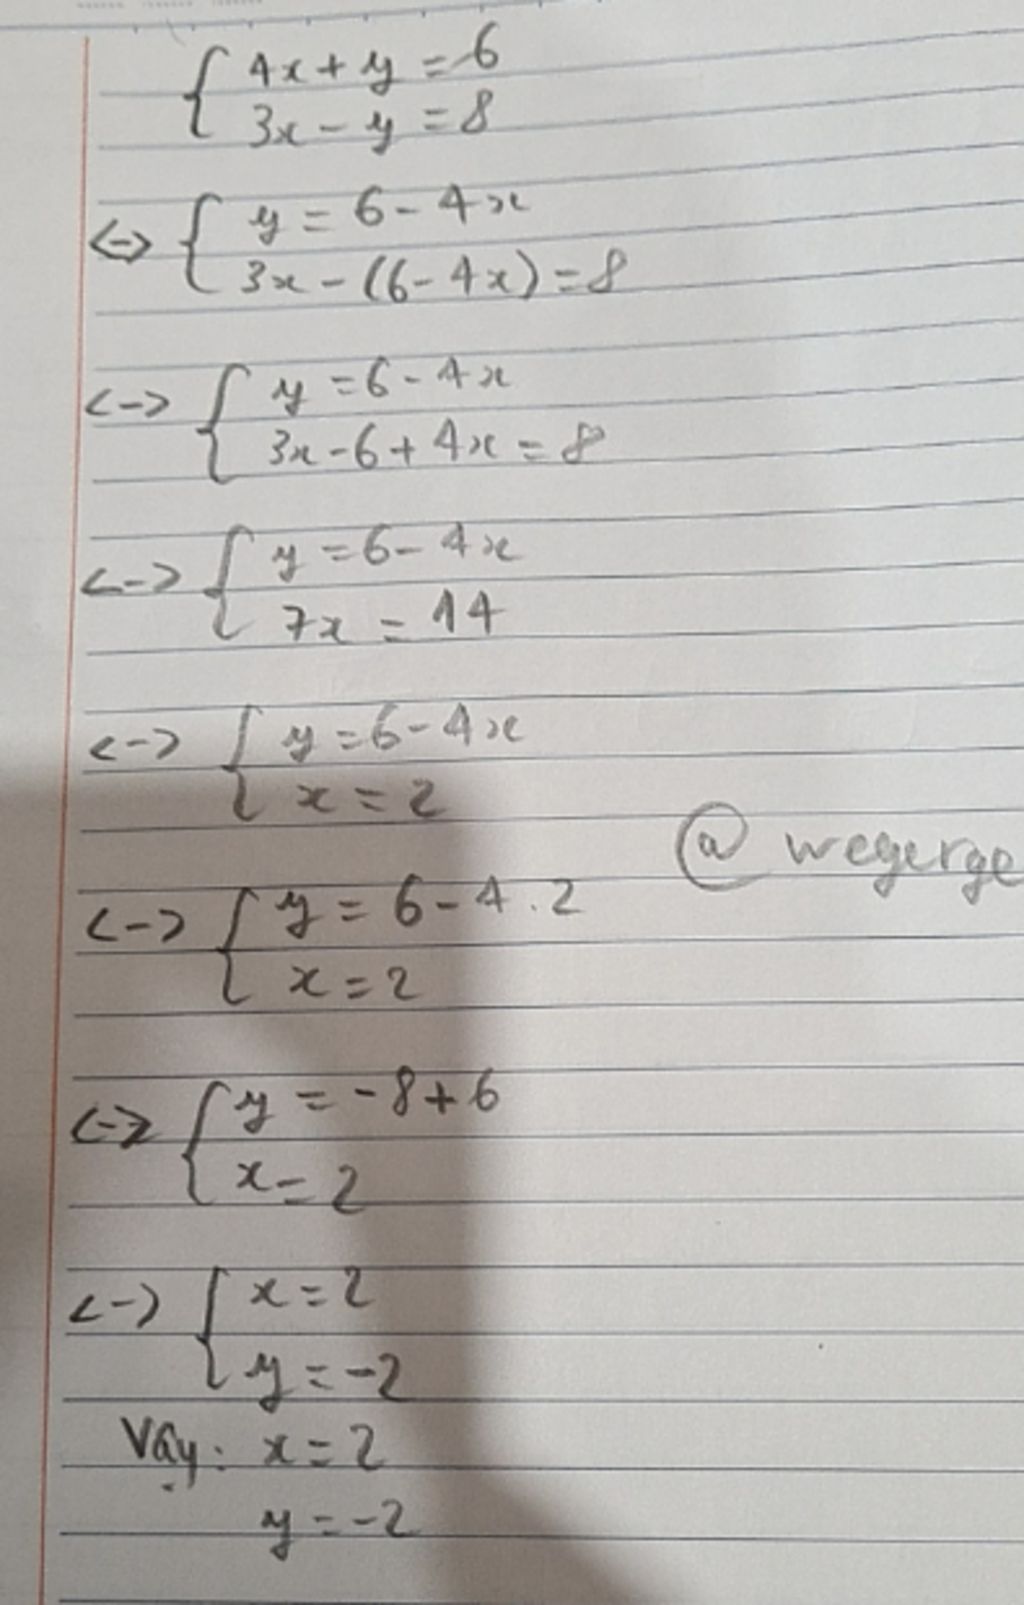 { 4x + y = 6
3x - y = 8
<-> { y = 6 - 4x
3x - (6 - 4x) = 8
<-> { y = 6 - 4x
3x - 6 + 4x = 8
<-> { y = 6 - 4x
7x = 14
<-> { y = 6 - 4x
x = 2
@ wegerge
<-> { y = 6 - 4 . 2
x = 2
<-> { y = -8 + 6
x = 2
<-> { x = 2
y = -2
Vậy: x = 2
y = -2